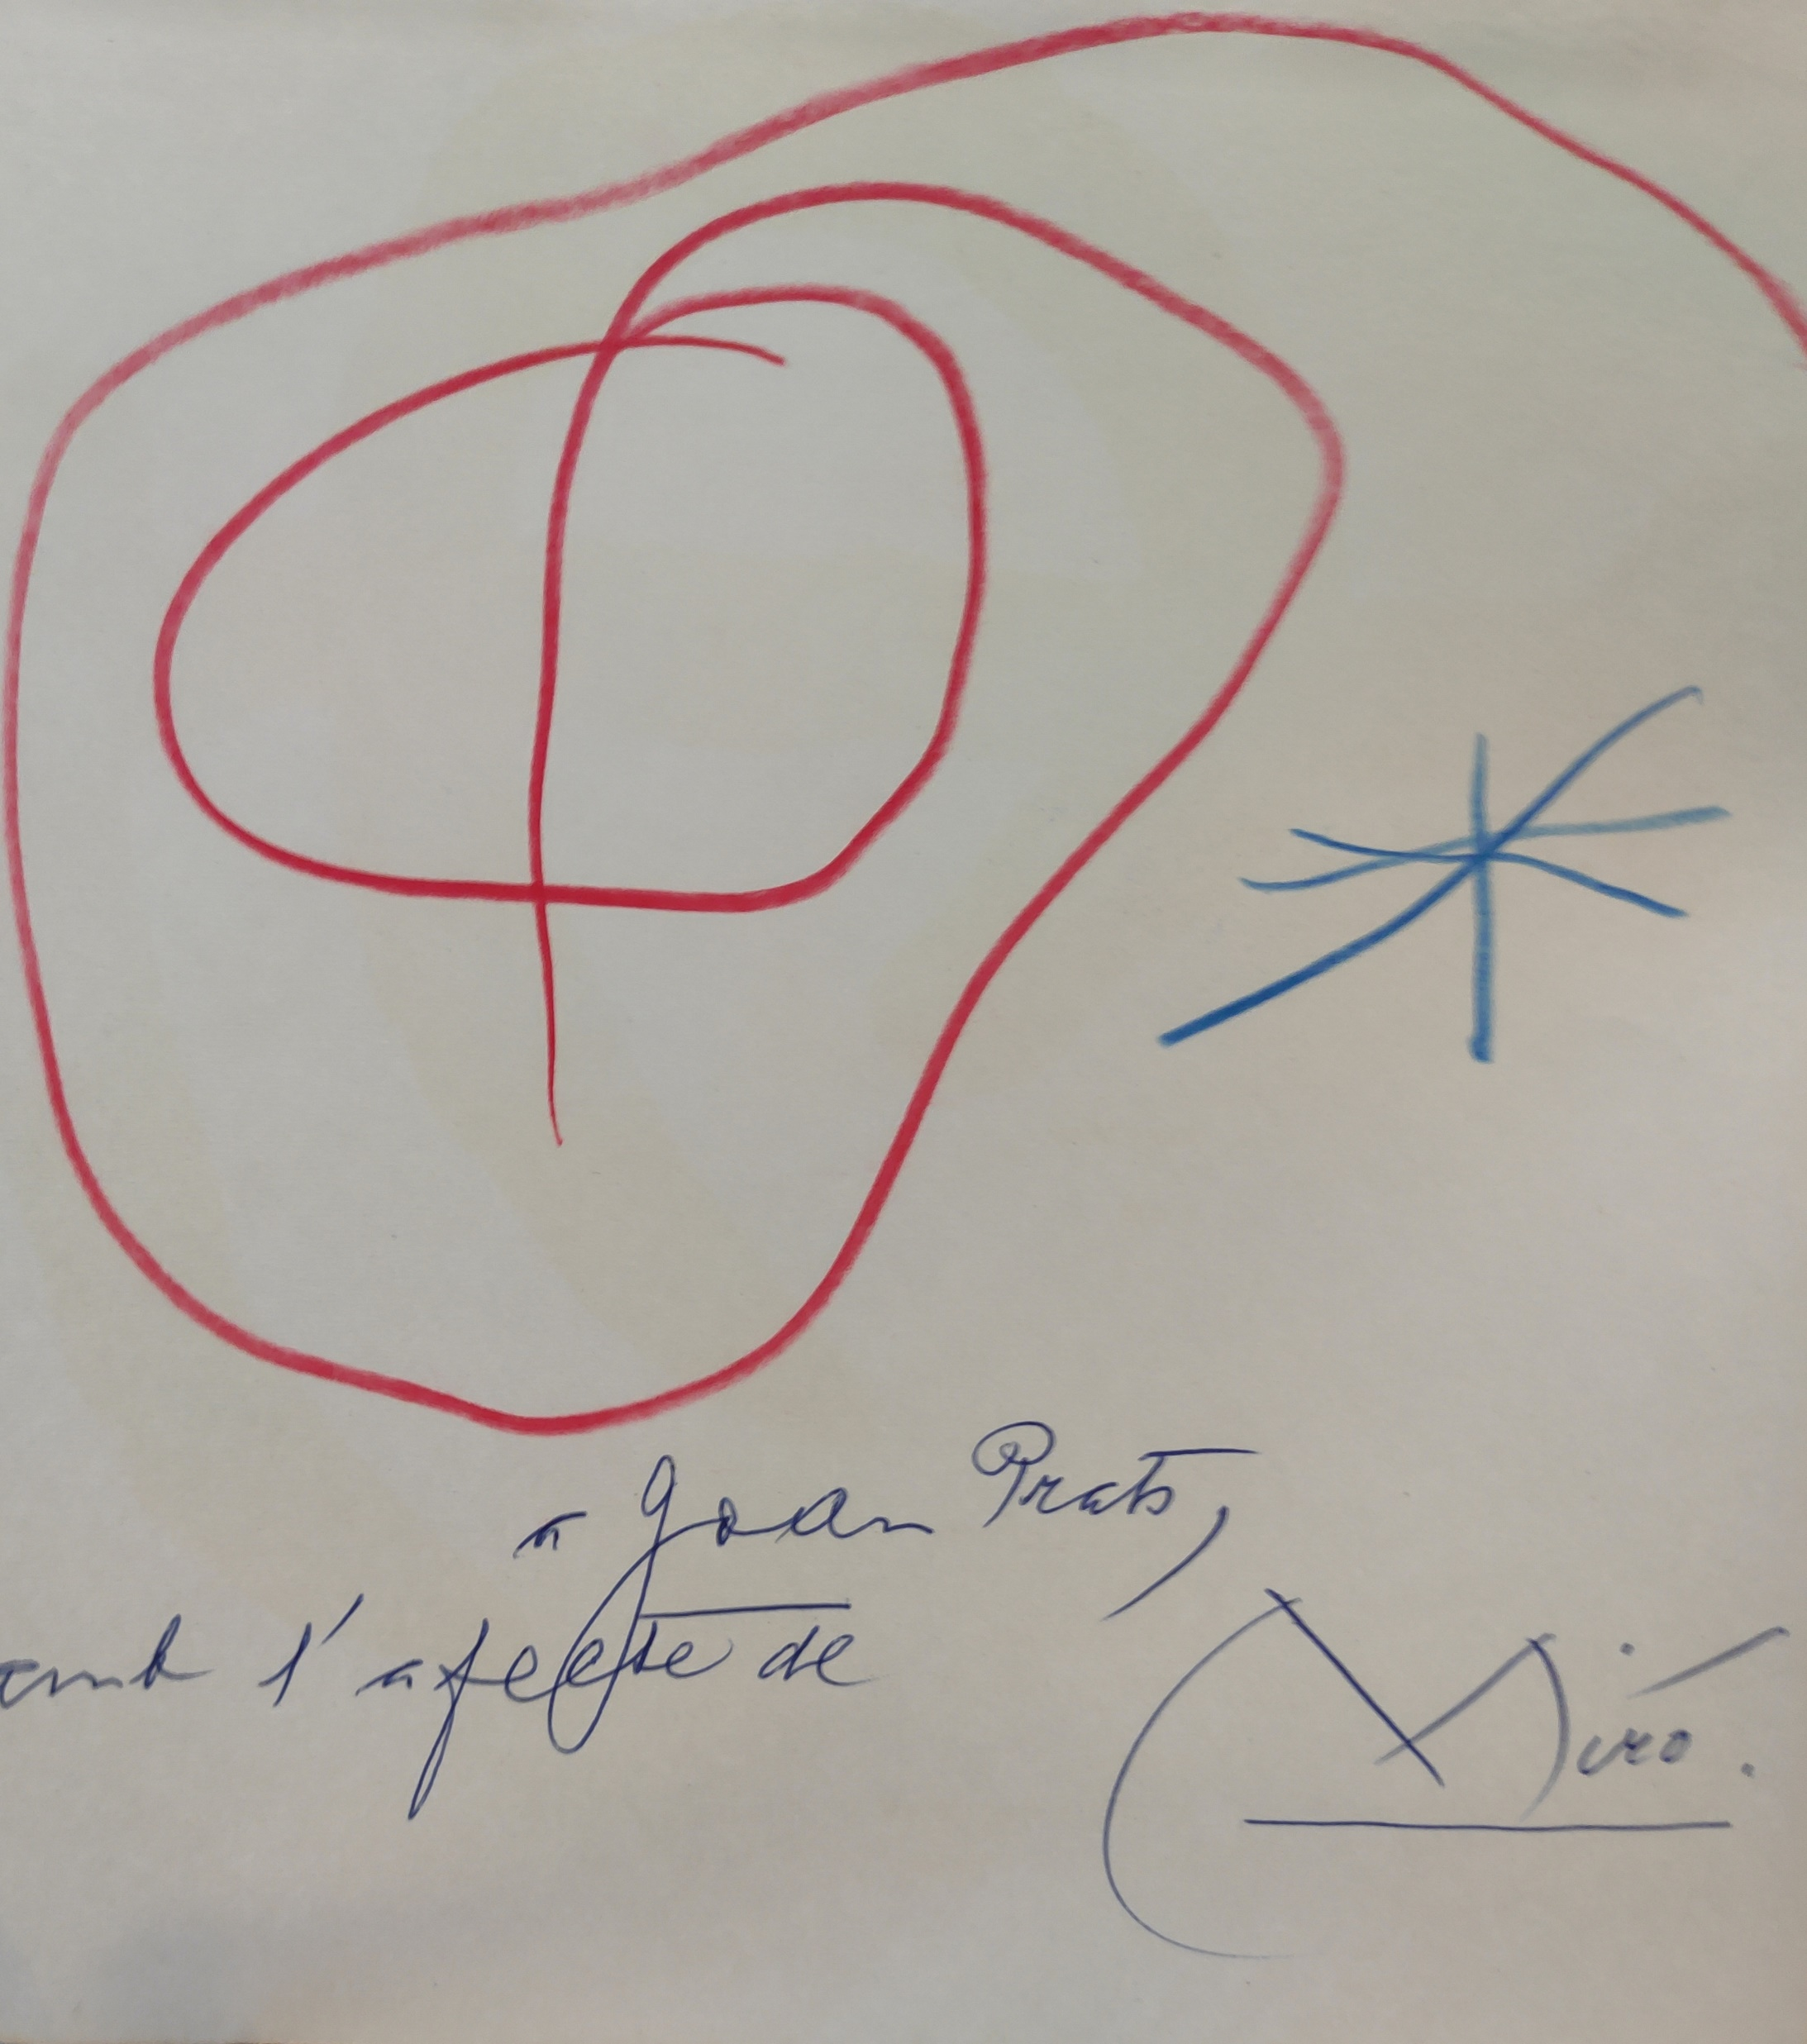 a Joan Prats,
amb l'afecte de
Miró.